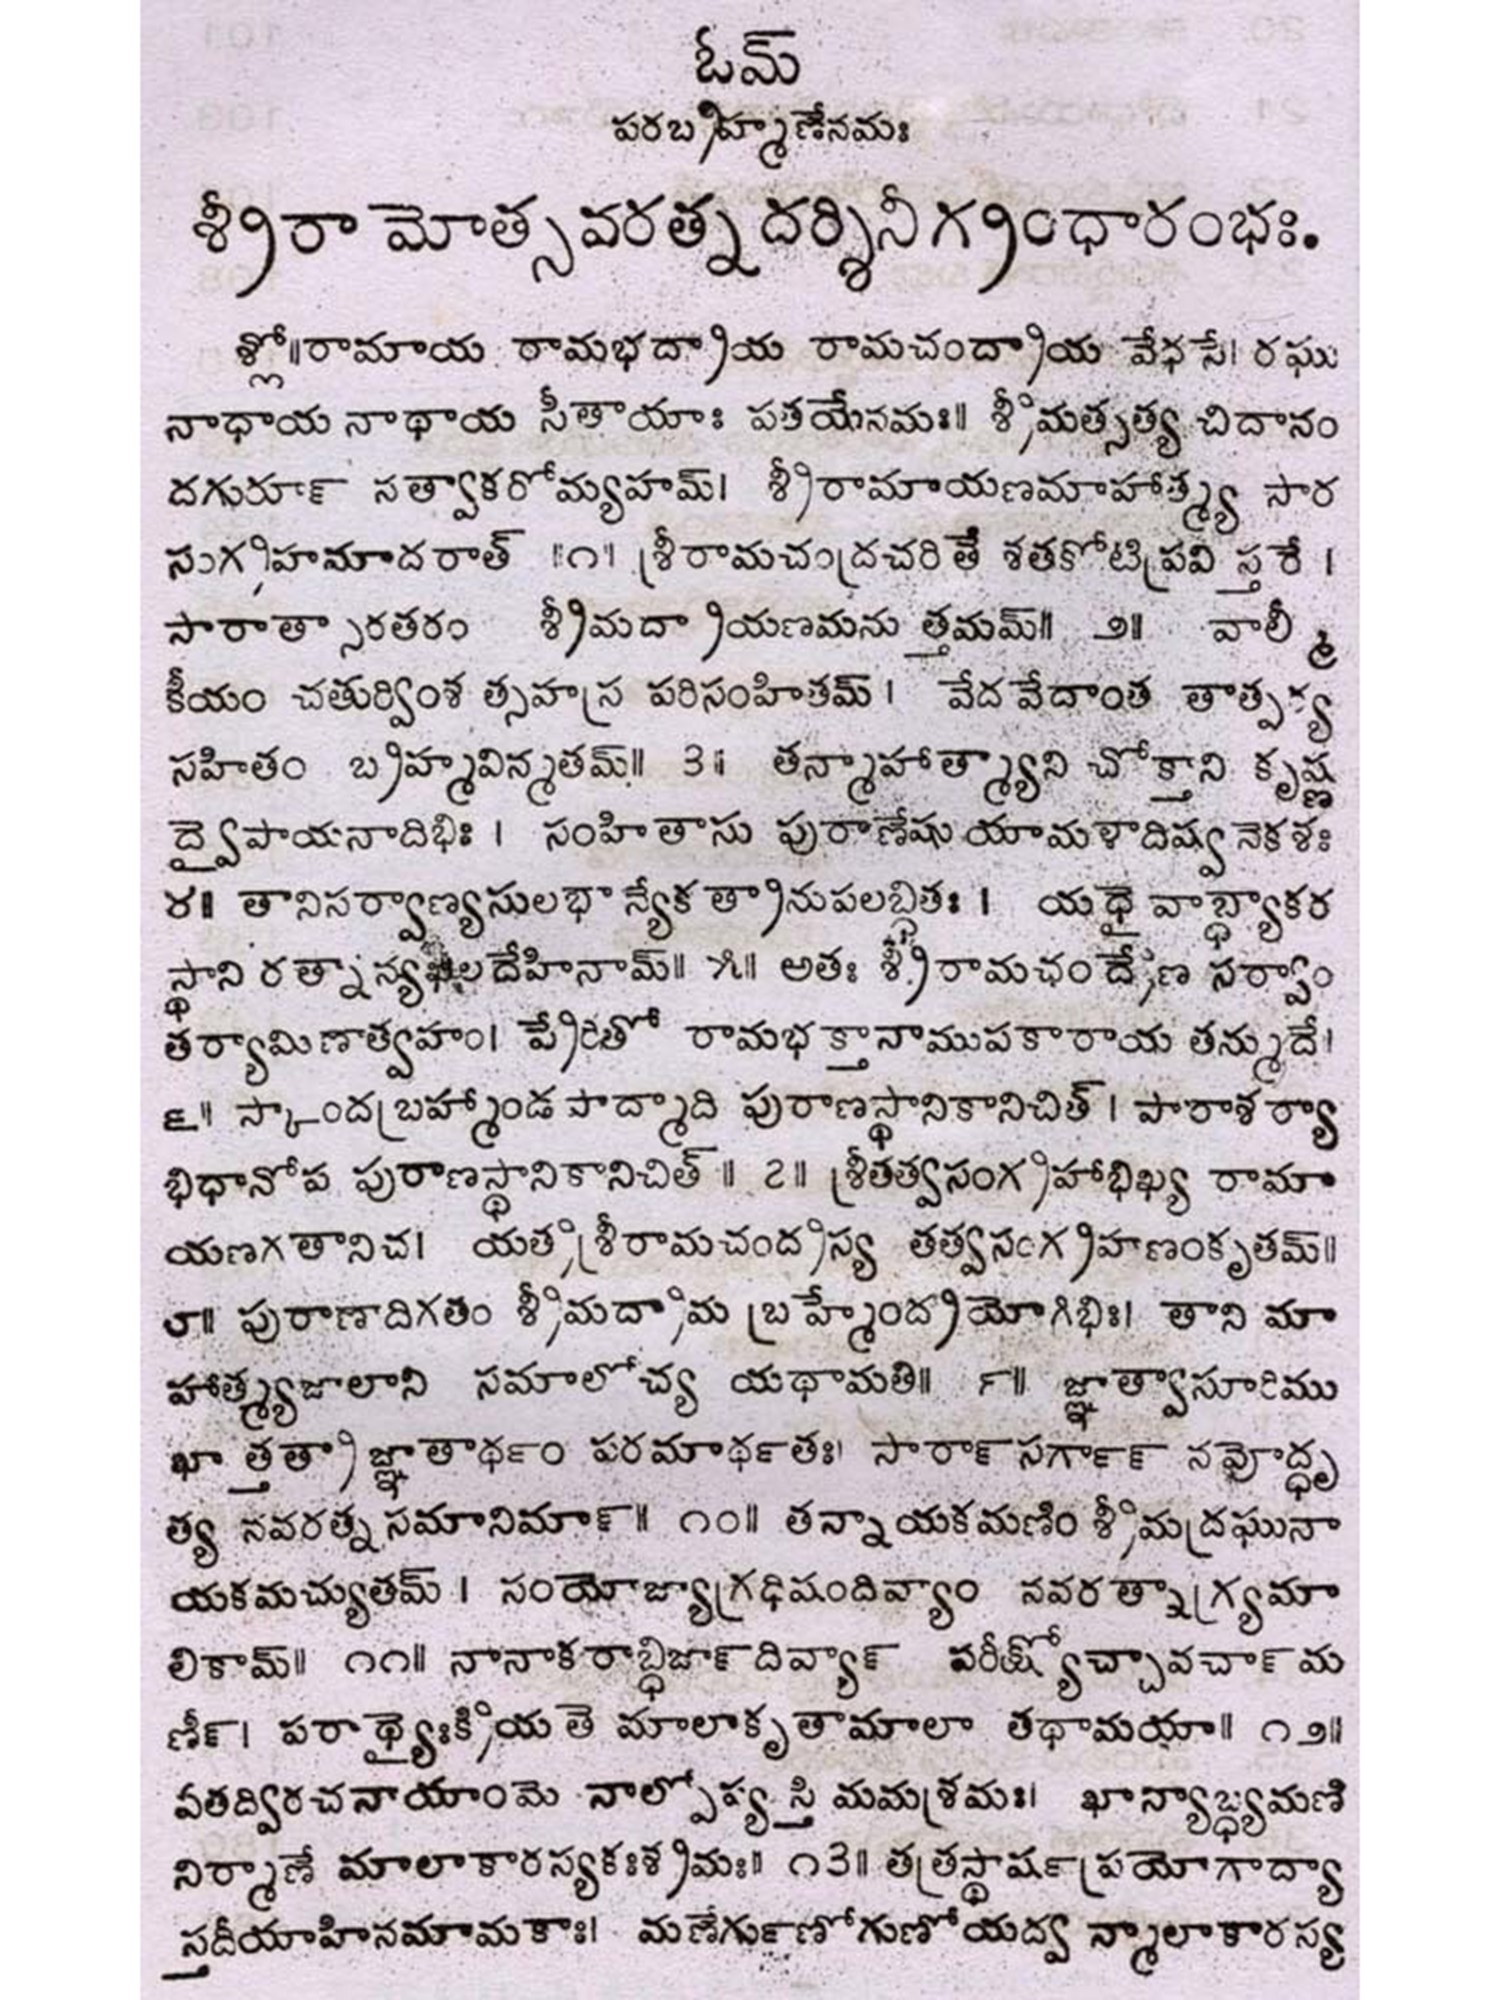 ఓమ్
పరబ్రహ్మణేనమః
శ్రీరామోత్సవరత్న దర్శినీ గ్రంధారంభః.
శ్లో॥రామాయ రామభద్రాయ రామచంద్రాయ వేధసే। రఘు
నాధాయ నాథాయ సీతాయాః పతయేనమః॥ శ్రీమత్సత్య చిదానం
దగురూ౯ నత్వాకరోమ్యహమ్। శ్రీరామాయణమాహాత్మ్య సార
సుగ్రహమాదరాత్ ॥౧॥ శ్రీరామచంద్రచరితే శతకోటిప్రవి స్తరే ।
సారాత్సారతరం శ్రీమద్రాయణమను త్తమమ్॥ ౨॥ వాల్మీ
కీయం చతుర్వింశ త్సహస్ర పరిసంహితమ్। వేదవేదాంత తాత్పర్య
సహితం బ్రహ్మవిన్మతమ్॥ ౩॥ తన్మాహాత్మ్యాని చోక్తాని కృష్ణ
ద్వైపాయనాదిభిః । సంహితాసు పురాణేషు యామళాదిష్వనెకశః
౪॥ తానిసర్వాణ్యసులభా న్యేకత్రానుపలబ్ధితః । యథై వాబ్ధ్యాకర
స్థాని రత్నాన్యఖిలదేహినామ్॥ ౫॥ అతః శ్రీరామచంద్రేణ సర్వాం
తర్యామిణాత్వహం। ప్రేరితో రామభక్తానాముపకారాయ తన్ముదే।
౬॥ స్కాందబ్రహ్మాండ పాద్మాది పురాణస్థానికానిచిత్। పారాశర్యా
భిధానోప పురాణస్థానికానిచిత్ ॥ ౭॥ శ్రీతత్వసంగ్రహాభిఖ్య రామా
యణగతానిచ। యత్ర శ్రీరామచంద్రస్య తత్వసంగ్రహణంకృతమ్॥
౮॥ పురాణాదిగతం శ్రీమద్రామ బ్రహ్మేంద్రయోగిభిః। తాని మా
హాత్మ్యజాలాని సమాలోచ్య యథామతి॥ ౯॥ జ్ఞాత్వాసూరిము
ఖా త్తత్రా జ్ఞాతాథ౯ం పరమాథ౯తః। సారా౯ సగా౯౯ నవోద్ధృ
త్య నవరత్న సమానిమా౯॥ ౧౦॥ తన్నాయకమణిం శ్రీమద్రఘునా
యకమచ్యుతమ్ । సంయోజ్యాగ్రథిషందివ్యాం నవరత్నాగ్ర్యమా
లికామ్॥ ౧౧॥ నానాకరాబ్ధిజా౯దివ్యా౯ పరీక్ష్యోచ్చావచా౯మ
ణీ౯। పరార్థ్యైఃక్రియతె మాలాకృతామాలా తథామయా॥ ౧౨॥
ఏతద్విరచనాయాంమె నాల్పోప్య స్తి మమశ్రమః। ఖాన్యాబ్ధ్యమణి
నిర్మాణే మాలాకారస్యకఃశ్రమః॥ ౧౩॥ తత్రస్థాష౯ప్రయోగాద్యా
స్తదీయాహినమామకాః। మణేగు౯ణోగుణోయద్వ న్మాలాకారస్య